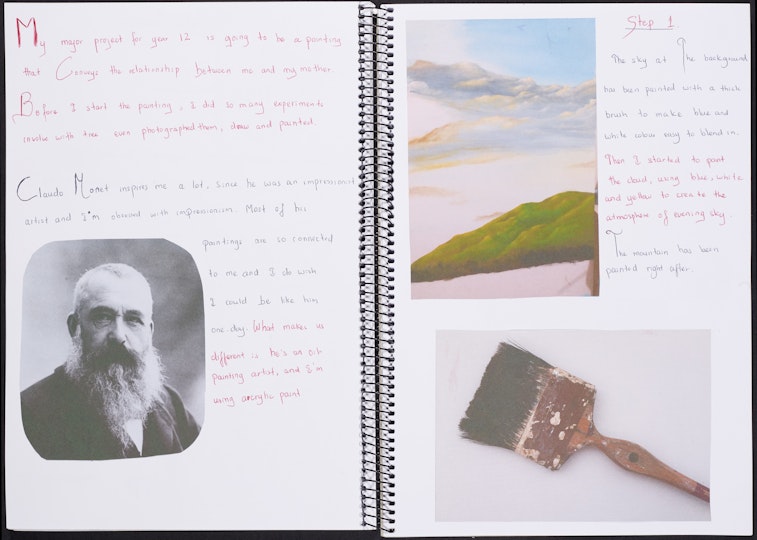 My major project for year 12 is going to be a painting
that Conveys the relationship between me and my mother.
Before I start the painting, I did so many experiments
involve with tree even photographed them, draw and painted.
Claudo Monet inspires me a lot, since he was an impressionist
artist and I'm obsessed with impressionism. Most of his
paintings are so connected
to me and I do wish
I could be like him
one day. What makes us
different is he's an oil
painting artist, and I'm
using acrylic paint
Step 1
The sky at The background
has been painted with a thick
brush to make blue and
white colour easy to blend in.
Then I started to paint
the cloud, using blue, white
and yellow to create the
atmosphere of evening sky.
The mountain has been
painted right after.